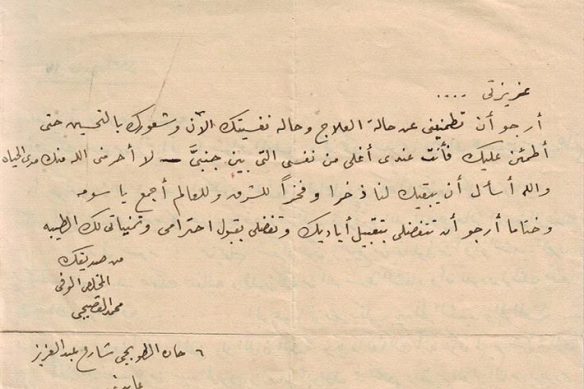 عزيزتى ....
أرجو أن تطمنينى عن حالة العلاج وحالة نفسيتك الآن وشعورك بالتحسين حتى
أطمئن عليك فأنت عندى أغلى من نفسى التى بين جنبىَّ — لا أحرمنى الله منك مدى الحياه
والله أسأل أن يبقيك لنا ذخرا وفخراً للشرق وللعالم أجمع يا سومه
وختاما أرجو أن تتفضلى بتقبيل أياديك وتفضلى بقبول احترامى وتمنياتى لك الطيبه
من صديقك
المخلص الوفى
محمد القصبجى
٦ حارة الطوبجى شارع عبد العزيز
عابدين